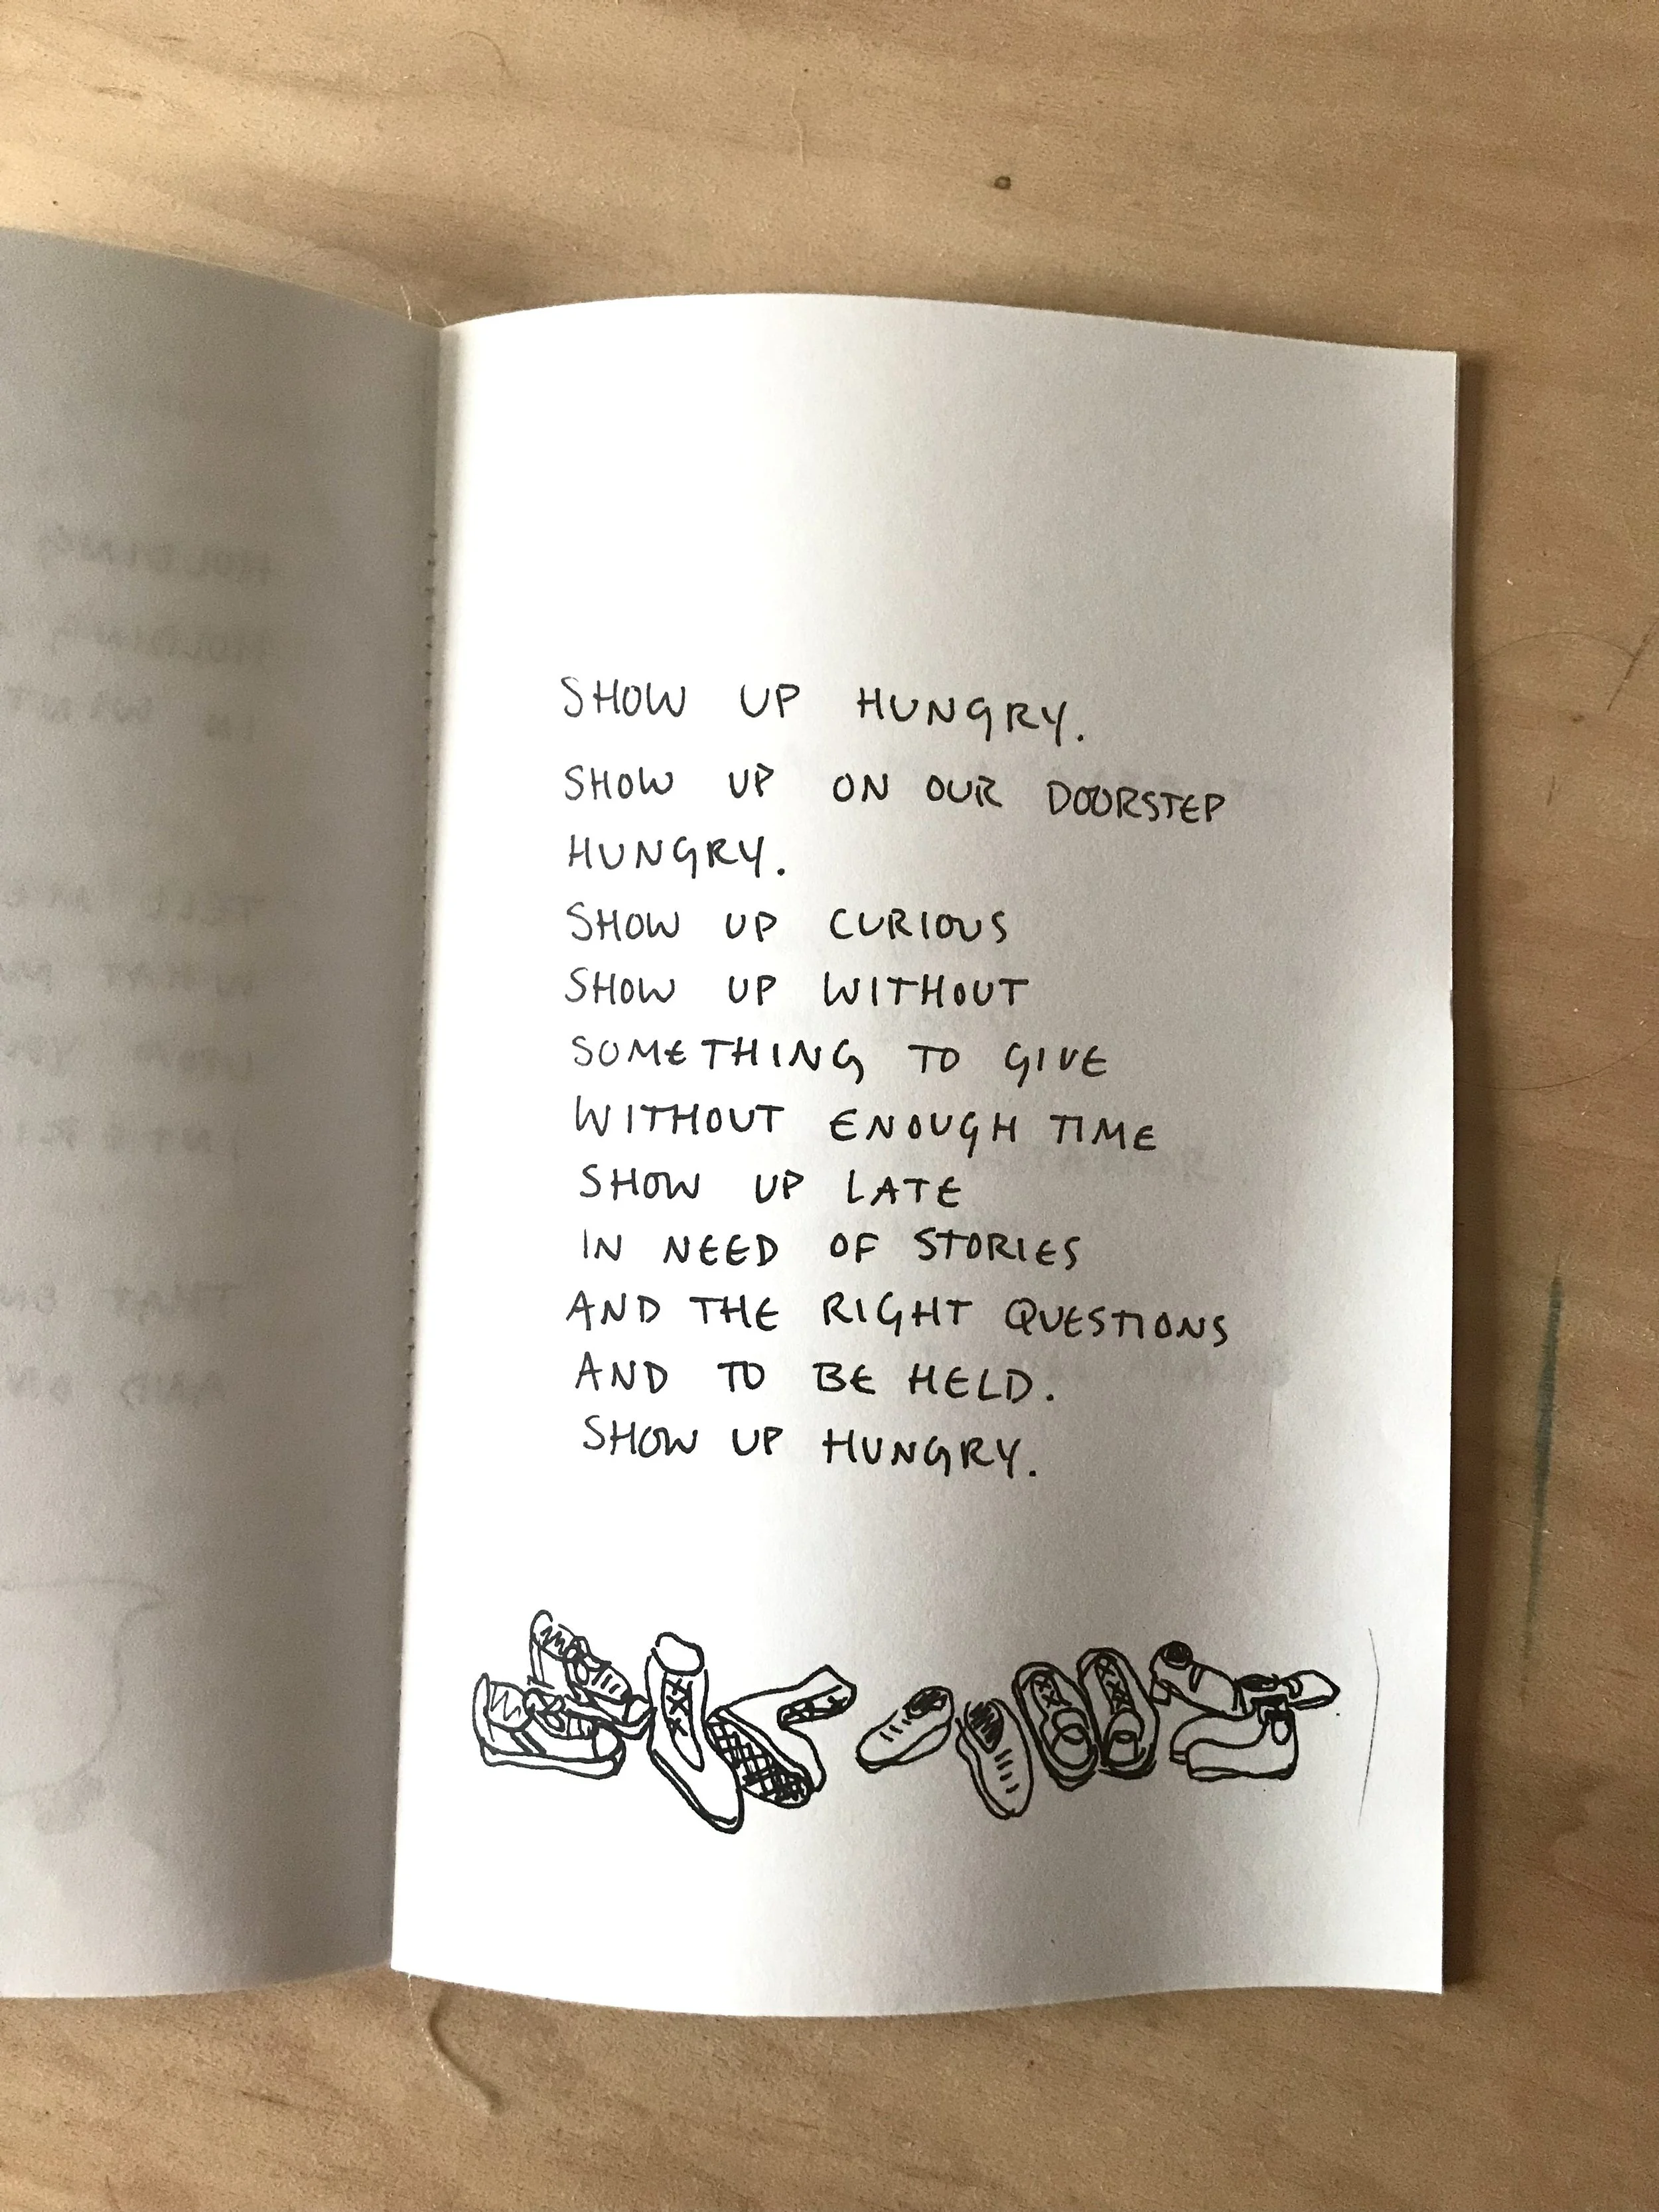 SHOW UP HUNGRY.
SHOW UP ON OUR DOORSTEP
HUNGRY.
SHOW UP CURIOUS
SHOW UP WITHOUT
SOMETHING TO GIVE
WITHOUT ENOUGH TIME
SHOW UP LATE
IN NEED OF STORIES
AND THE RIGHT QUESTIONS
AND TO BE HELD.
SHOW UP HUNGRY.